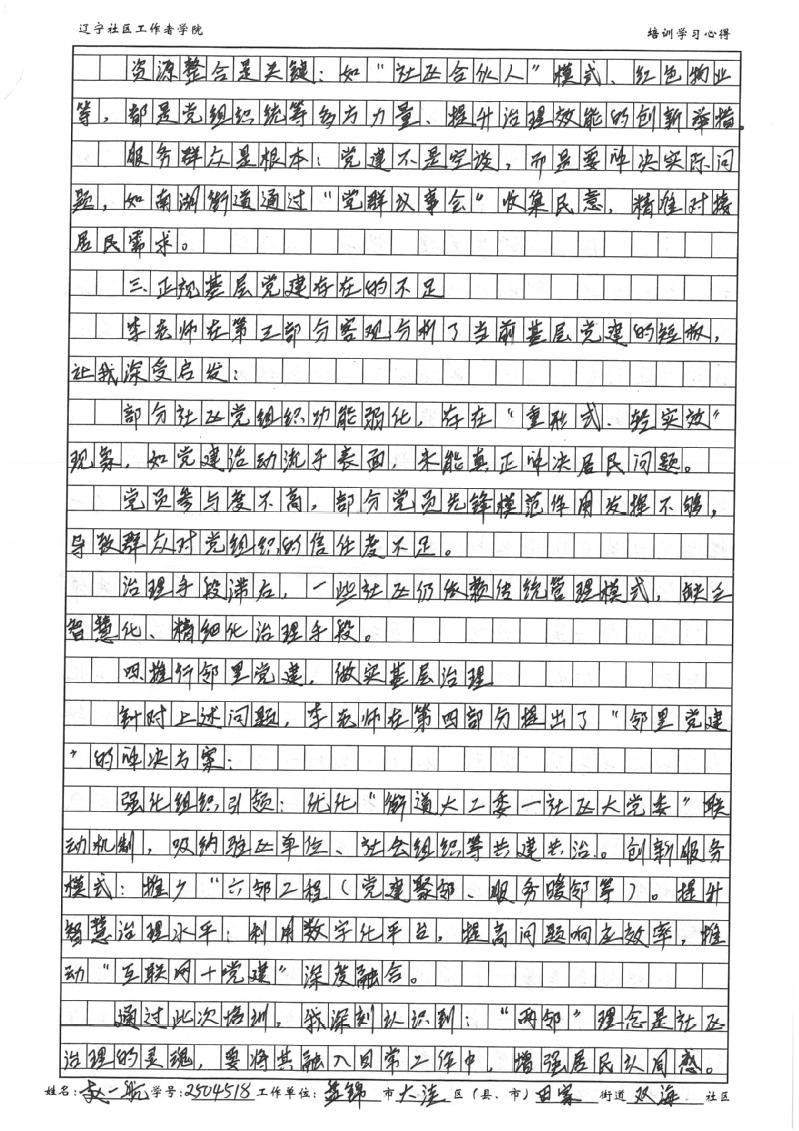 辽宁社区工作者学院 培训学习心得
资源整合是关键：如“社区合伙人”模式、红色物业
等，都是党组织统筹多方力量、提升治理效能的创新举措。
服务群众是根本：党建不是空谈，而是要解决实际问
题，如南湖街道通过“党群议事会”收集民意，精准对接
居民需求。
三、正视基层党建存在的不足
李老师在第三部分客观分析了当前基层党建的短板，
让我深受启发：
部分社区党组织功能弱化，存在“重形式、轻实效”
现象，如党建活动流于表面，未能真正解决居民问题。
党员参与度不高，部分党员先锋模范作用发挥不够，
导致群众对党组织的信任度不足。
治理手段滞后，一些社区仍依赖传统管理模式，缺乏
智慧化、精细化治理手段。
四、推行邻里党建，做实基层治理
针对上述问题，李老师在第四部分提出了“邻里党建
”的解决方案：
强化组织引领：优化“街道大工委一社区大党委”联
动机制，吸纳驻区单位、社会组织等共建共治。创新服务
模式：推广“六邻工程（党建聚邻、服务暖邻等）。提升
智慧治理水平：利用数字化平台，提高问题响应效率，推
动“互联网+党建”深度融合。
通过此次培训，我深刻认识到：“两邻”理念是社区
治理的灵魂，要将其融入日常工作中，增强居民认同感。
姓名：赵一航 学号：2504518 工作单位：盘锦 市 大洼 区（县、市） 田家 街道 双海 社区